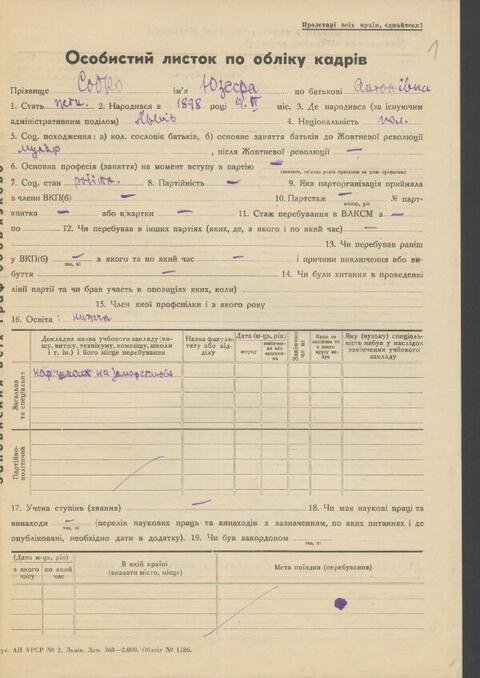 Пролетарі всіх країн, єднайтеся!
1
Особистий листок по обліку кадрів
Прізвище Собко ім'я Юзефа по батькові Антонівна
1. Стать жін. 2. Народився в 1898 році 4.VI міс. 3. Де народився (за існуючим
адміністративним поділом) Львів 4. Національність пол.
5. Соц. походження: а) кол. сословіє батьків, б) основне заняття батьків до Жовтневої революції
муляр, після Жовтневої революції —
6. Основна професія (заняття) на момент вступу в партію —
7. Соц. стан робітн. 8. Партійність — 9. Яка парторганізація прийняла
в члени ВКП(б) — 10. Партстаж — № парт-
місяць, рік
квитка — або к/картки — 11. Стаж перебування в ВЛКСМ з —
по — 12. Чи перебував в інших партіях (яких, де, з якого і по який час) —
13. Чи перебував раніш
у ВКП(б) — з якого та по який час — і причини виключення або ви-
так, ні
буття — 14. Чи були хитання в проведенні
лінії партії та чи брав участь в опозиціях яких, коли)
15. Член якої профспілки і з якого року
16. Освіта: нижча
Докладна назва учбового закладу (ви-
шу, втушу, технікуму, комвишу, школи
і т. ін.) і його місце перебування
Назва факуль-
тету або від-
ділу
Дата (м-ць, рік)
вступу
Закінчив чи ні
Яку (вузьку) спеціаль-
ність набув у наслідок
закінчення учбового
закладу
Загальна
та спеціальна
нар. школа на Замарстинові
Партійно-
політична
17. Учена ступінь (звання) — 18. Чи має наукові праці та
винаходи — (перелік наукових праць та винаходів з зазначенням, по яких питаннях і де
так, ні
опубліковані, необхідно дати в додатку). 19. Чи був закордоном
так, ні
(Дата м-ць, рік)
з якого
часу
по який
час
В якій країні
(вказати місто, місце)
Мета поїздки (перебування)
АН УРСР № 2. Львів. Зам. 368—2.000. Обліт № 1186.